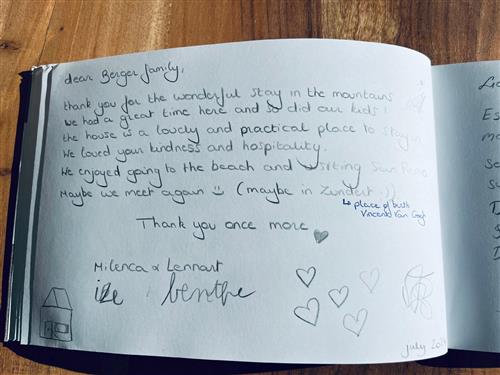 dear Berger family,
thank you for the wonderful stay in the mountains
we had a great time here and so did our kids!
the house is a lovely and practical place to stay in
We loved your kindness and hospitality.
We enjoyed going to the beach and visiting San Remo
Maybe we meet again ☺ (maybe in Zundert :))
↳ place of birth
Vincent Van Gogh
Thank you once more ♥
Milenca & Lennart
july